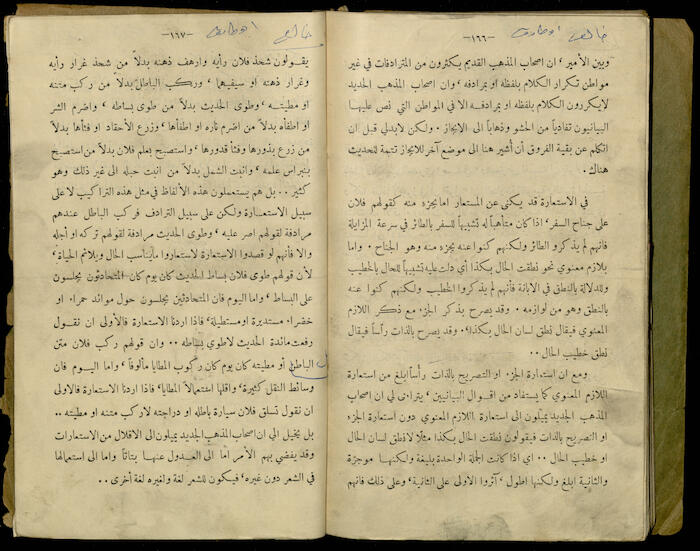 -١٦٦-
وبين الأمير، ان اصحاب المذهب القديم يكثرون من المترادفات في غير
مواطن تكرار الكلام بلفظه او بمرادفه، وان اصحاب المذهب الجديد
لا يكررون الكلام بلفظه او بمرادفه الا في المواطن التي نص عليها
البيانيون تفادياً من الحشو وذهاباً الى الايجاز. ولكن لا بد لي قبل ان
اتكلم عن بقية الفروق أن أشير هنا الى موضع آخر للايجاز تتمة للحديث
هناك.
في الاستعارة قد يكنى عن المستعار اما بجزء منه كقولهم فلان
على جناح السفر، اذا كان متأهباً له تشبيهاً للسفر بالطائر في سرعة المزايلة
فانهم لم يذكروا الطائر ولكنهم كنوا عنه بجزء منه وهو الجناح. واما
بلازم معنوي نحو نطقت الحال بكذا أي دلت عليه تشبيهاً للحال بالخطيب
وللدلالة بالنطق في الابانة فأنهم لم يذكروا الخطيب ولكنهم كنوا عنه
بالنطق وهو من لوازمه. وقد يصرح بذكر الجزء مع ذكر اللازم
المعنوي فيقال نطق لسان الحال بكذا. وقد يصرح بالذات رأساً فيقال
نطق خطيب الحال..
ومع ان استعارة الجزء او التصريح بالذات رأساً ابلغ من استعارة
اللازم المعنوي كما يستفاد من اقوال البيانيين، يتراءى لي ان اصحاب
المذهب الجديد يميلون الى استعارة اللازم المعنوي دون استعارة الجزء
او التصريح بالذات فيقولون نطقت الحال بكذا مثلا لا نطق لسان الحال
او خطيب الحال.. اي اذا كانت الجملة الواحدة بليغة ولكنها موجزة
والثانية ابلغ ولكنها اطول، آثروا الاولى على الثانية، وعلى ذلك فانهم
-١٦٧-
يقولون شحذ فلان رأيه وارهف ذهنه بدلاً من شحذ غرار رأيه
وغرار ذهنه او سيفهما، وركب الباطل بدلاً من ركب متنه
او مطيته، وطوى الحديث بدلاً من طوى بساطه، واضرم الشر
او اطفأه بدلاً من اضرم ناره او اطفأها، وزرع الأحقاد او فثأها بدلاً
من زرع بذورها وفثأ قدورها، واستصبح بعلم فلان بدلاً من استصبح
بنبراس علمه، وانبت الشمل بدلاً من انبت حبله الى غير ذلك وهو
كثير.. بل هم يستعملون هذه الألفاظ في مثل هذه التراكيب لا على
سبيل الاستعارة ولكن على سبيل الترادف فركب الباطل عندهم
مرادفة لقولهم اصر عليه، وطوى الحديث مرادفة لقولهم تركه او أجله
والا فأنهم لو قصدوا الاستعارة لاستعاروا ما يناسب الحال ويلائم الحياة،
لأن قولهم طوى فلان بساط الحديث كان يوم كان المتحادثون يجلسون
على البساط، واما اليوم فان المتحادثين يجلسون حول موائد حمراء او
خضراء مستديرة او مستطيلة، فاذا اردنا الاستعارة فالأولى ان نقول
رفعت مائدة الحديث لا طوي بساطه.. وان قولهم ركب فلان متن
الباطل أو مطيته كان يوم كان ركوب المطايا مألوفاً، واما اليوم فان
وسائط النقل كثيرة، واقلها استعمالاً المطايا، فاذا اردنا الاستعارة فالأولى
ان نقول تسلق فلان سيارة باطله او دراجته لا ركب متنه او مطيته..
بل يخيل الي ان اصحاب المذهب الجديد يميلون الى الاقلال من الاستعارات
وقد يفضي بهم الأمر اما الى العدول عنها بتاتاً واما الى استعمالها
في الشعر دون غيره، فيكون للشعر لغة ولغيره لغة أخرى..